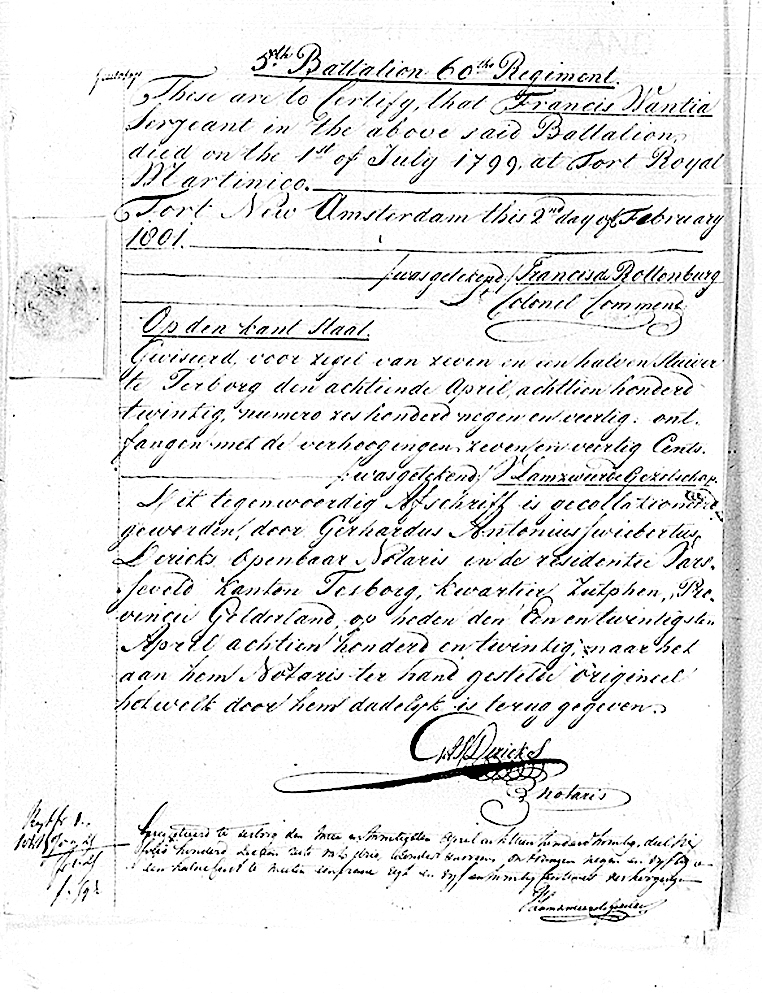 5th Battalion 60th Regiment.
These are to Certify, that Francis Wantia
Sergeant in the above said Battalion,
died on the 1st of July 1799, at Fort Royal
Martinico.
Fort New Amsterdam this 2nd day of February
1801.
/was getekend/ Francis de Rottenburg
Colonel Commend
Op den kant staat.
Geviseerd voor zegel van zeven en een halven Stuiver
te Terborg den achttiende April, achttien honderd
twintig, numero zes honderd negen en veertig: ont-
fangen met de verhoogingen zeven en veertig Cents.
/was getekend/ Lamzweerde Gezelschap
Dit tegenwoordig Afschrift is gecollationeerd
geworden, door Gerhardus Antonius Swiebertus
Dericks Openbaar Notaris in de residentie Vars-
seveld kanton Terborg, kwartier Zutphen, Pro-
vincie Gelderland, op heden den Een en twintigsten
April achttien honderd en twintig, naar het
aan hem Notaris ter hand gestelde origineel
hetwelk door hem dadelijk is terug gegeven.
GAS Dericks
notaris
te Terborg den twee en twintigsten April achttien honderd twintig, deel
folio honderd ontvangen negen en vijftig
een halve Cent